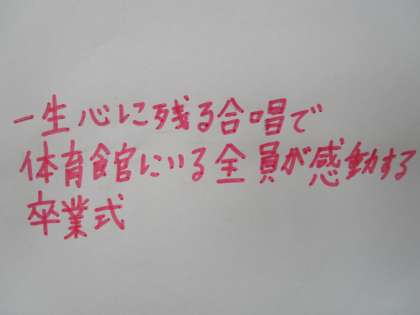 一生心に残る合唱で
体育館にいる全員が感動する
卒業式